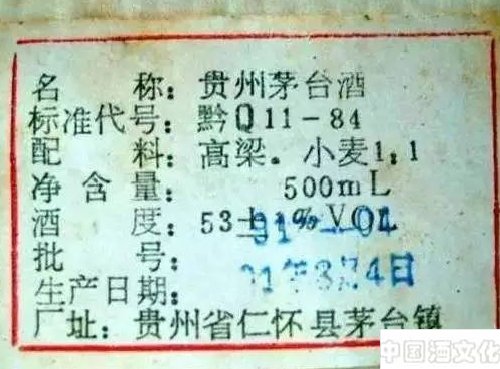 名 称: 贵州茅台酒
标准代号: 黔Q11-84
配 料: 高梁. 小麦1,1
净含量: 500mL
酒 度: 53±1%VOL
批 号: 91--04
生产日期: 91年3月4日
厂址: 贵州省仁怀县茅台镇
中国酒文化